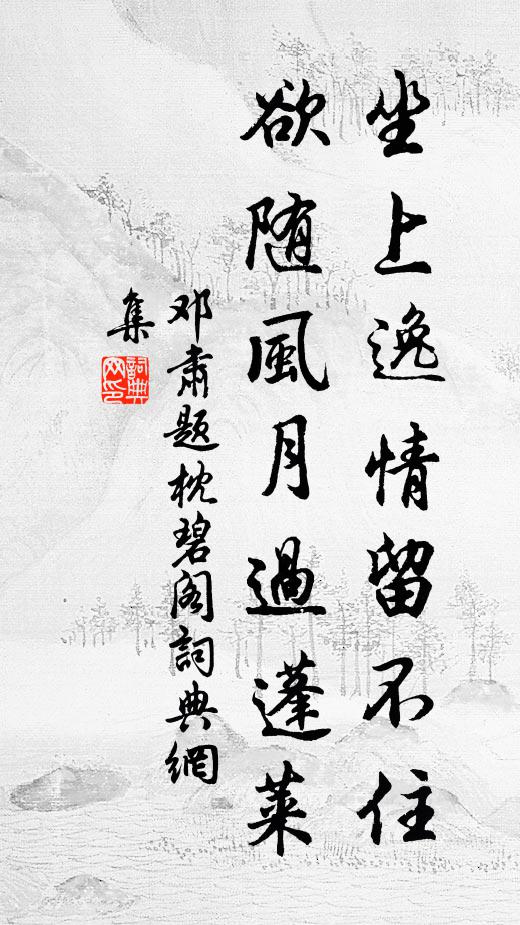 坐上逸情留不住
欲随風月過蓬莱
邓肃题枕碧阁詞典網
集
詞典
网印